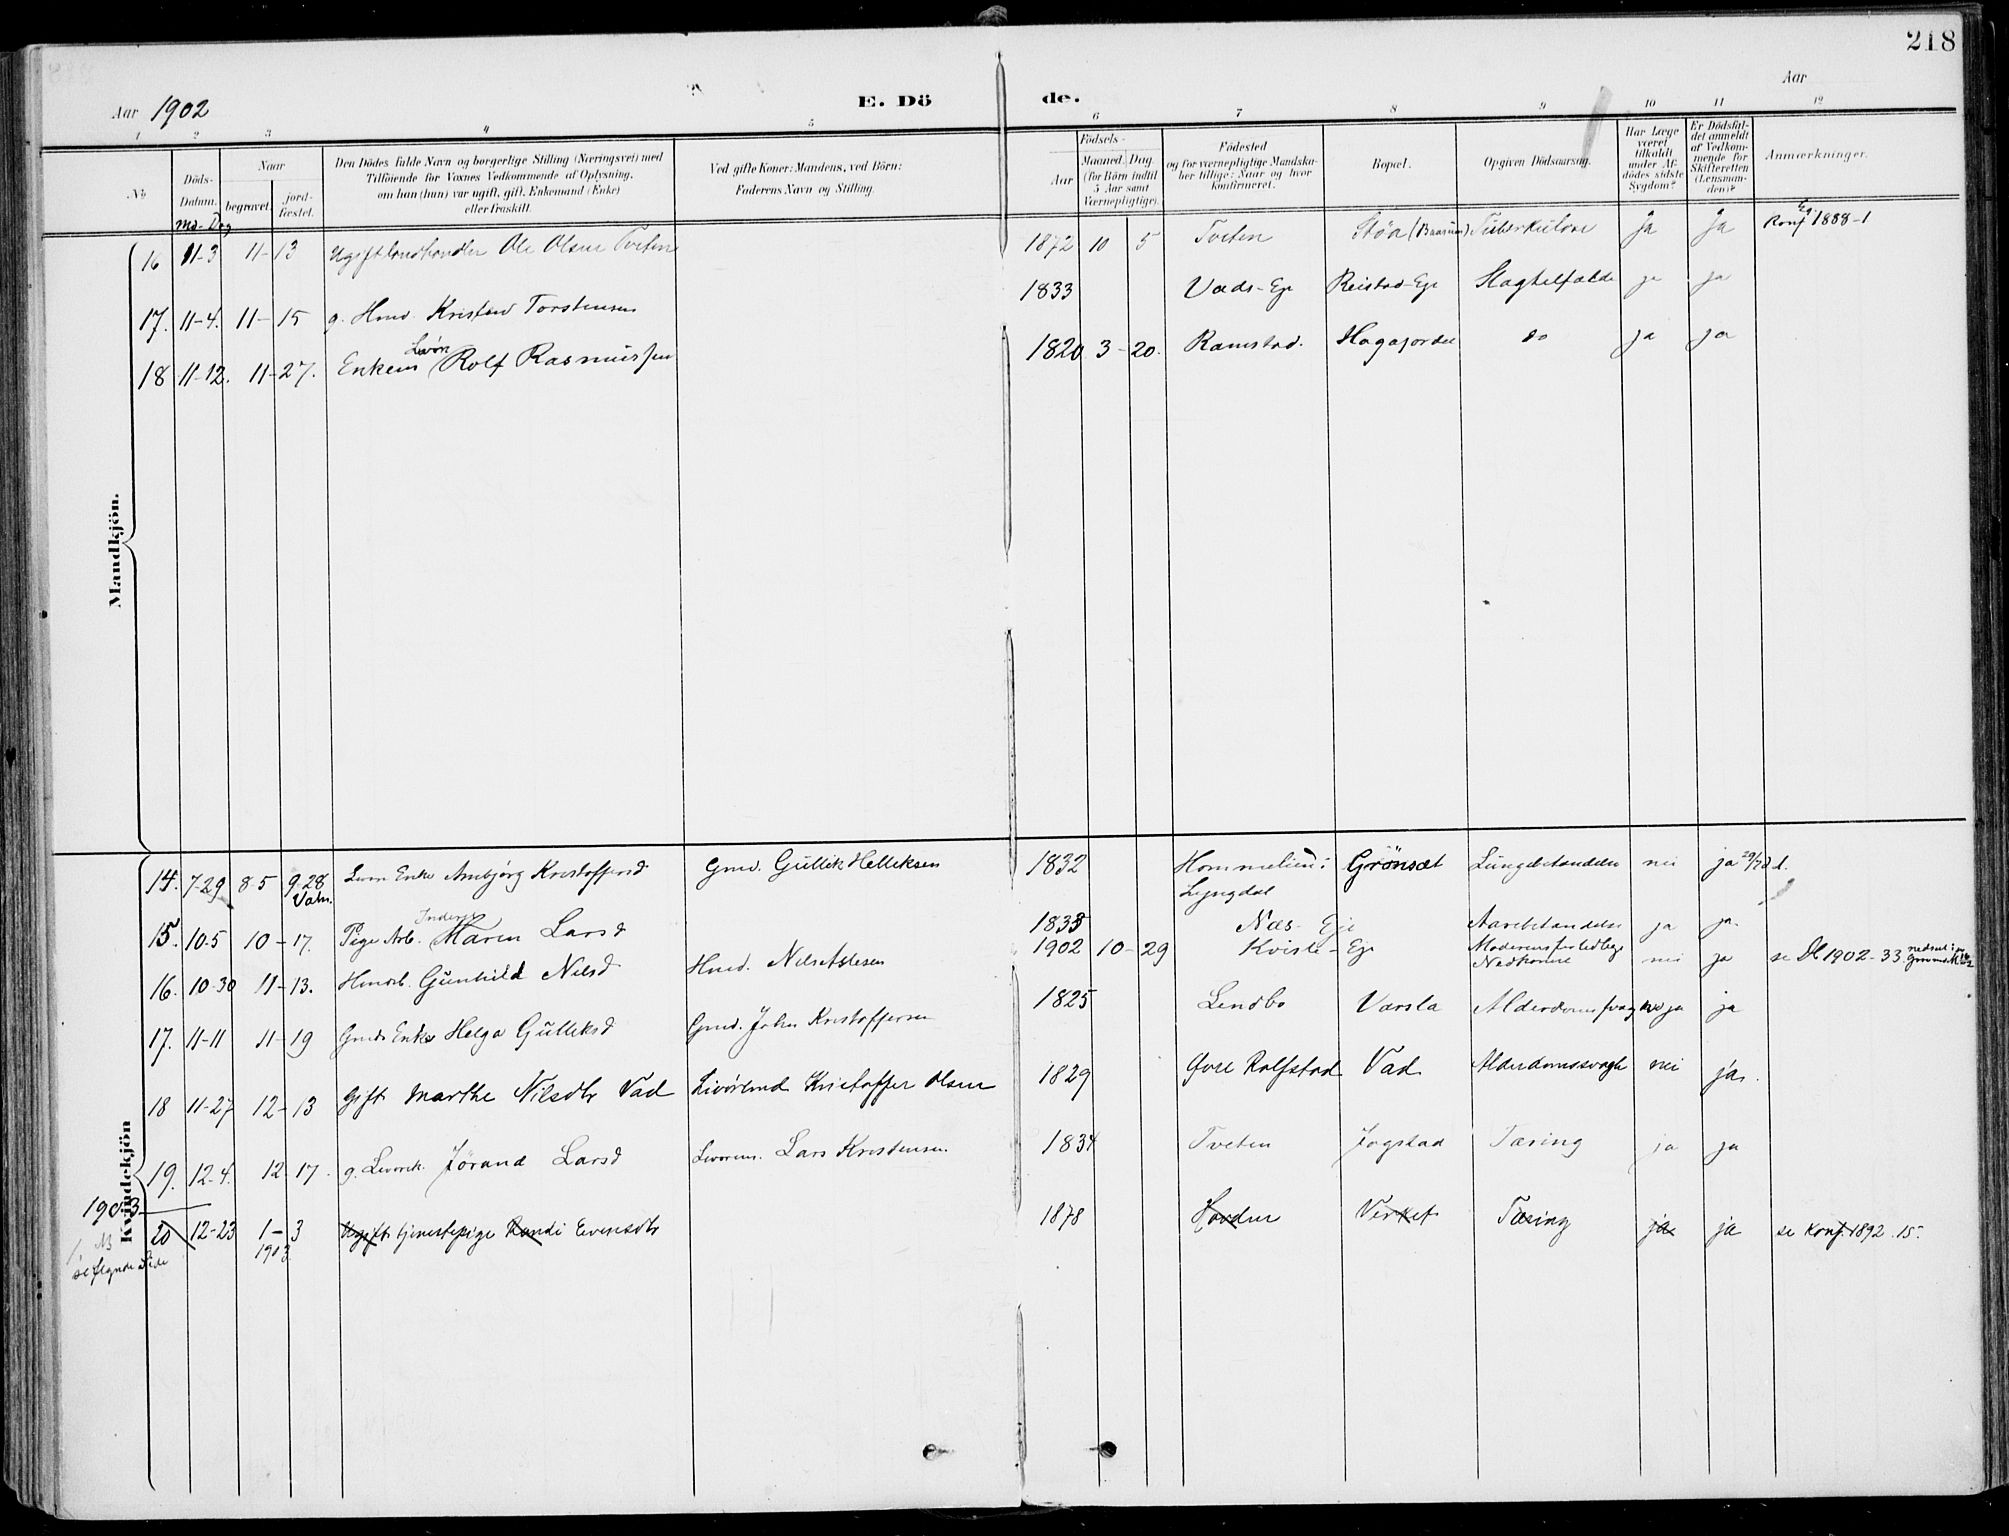 218
Aar 1902
E. Döde.
Aar
1 2 3 4 5 6 7 8 9 10 11 12
No
Döds-Datum.
Md- Dag
Naar
begravet.
jord-fæstet.
Den Dödes fulde Navn og borgerlige Stilling (Næringsvei) med
Tilföiende for Voxnes Vedkommende af Oplysning,
om han (hun) var ugift, gift, Enkemand (Enke)
eller fraskilt.
Ved gifte Koner: Mandens, ved Börn:
Faderens Navn og Stilling.
Födsels-
Aar
Maaned. Dag.
(for Börn indtil
5 Aar samt
Værnepligtige).
Födested
og for værnepligtige Mandska-
ber tillige: Naar og hvor
konfirmeret.
Bopæl.
Opgiven Dödsaarsag.
Har Læge
været
tilkaldt
under Af-
dödes sidste
Sygdom?
Er Dödsfal-
det anmeldt
af Vedkom-
mende for
Skifteretten
(Lensman-
den)?
Anmærkninger.
Mandkjön.
16 11-3 11-13 Ugift Landhandler Ole Olsen Tveten 1872 10 5 Tveten Stöa (Bærum) Tuberkulose Ja Ja Konf 1888-1
17. 11-4. 11-15 g. Hmd. Kristen Torstensen 1833 Vads-Eje Reistad-Eje Slagtilfælde ja ja
18 11-12. 11-27. Enkem Rolf Rasmussen 1820 3-20. Ramstad. Hagajordet do ja ja
Kvindekjön
14. 7-29 8-5 9-28 Enke Anbjørg Kristoffersd Gmd. Gullik Helleksen 1832 Hommelien i Grönsæt Lungebetændelse nei ja 29/7 d.
Lyngdal
15. 10-5 10-17. Pige Arb. Maren Larsd 1835 Næs-Eje Aarebetændelse ja ja.
16. 10-30 11-13. Gunhild Nilsd Hmd. Nils Aslesen 1902 10-29 Kviste-Eje Nedkomst nei ja se Dl 1902-33
17. 11-11 11-19 Gmds Enke Helga Gulleksd Gmd. John Kristoffersen 1825 Lendbo Varsla ja ja
18 11-27 12-13 Gift Marthe Nilsdtr Vad Kristoffer Olsen 1829 Övre Rolfstad Vad Alderdomssvaghed nei ja.
19. 12-4. 12 17. g. Jörand Larsd Lars Kristensen 1834 Tveten Jogstad Tæring ja ja
1903
20 12-23 1-3 Ugift tjenestepige Randi Evensdtr 1878 Verket Tæring ja ja se Konf. 1892.15.
1903
se flgnde Side